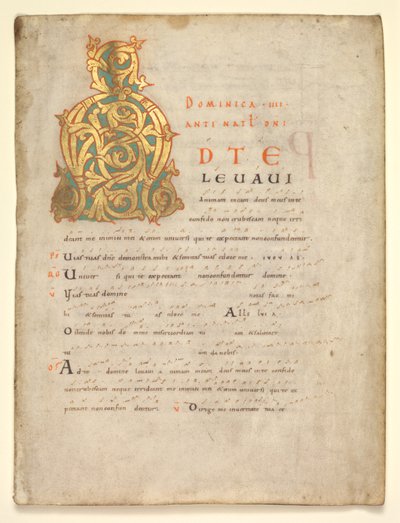 DOMINICA · IIII ·
ANTI NATĪ DNI
A D T E
LEUAUI
Animam meam deus meus in te
confido non erubescam neque irri
deant me inimici mei & enim universi qui te expectant non confundentur.
PS Uias tuas dñe demonstra mihi & semitas tuas edoce me.
UNIVER si qui te expectant non confundentur domine
V Uias tuas domine notas fac mi
hi & semitas tu as edoce me All luia
Ostende nobis domine misericordiam tu am & salutare
tu um da nobis.
OF Ad te domine levavi animam meam deus meus in te confido
non erubescam neque irrideant me inimici mei & enim universi qui te ex
pectant non confun dentur. V Dirige me in veritate tua et